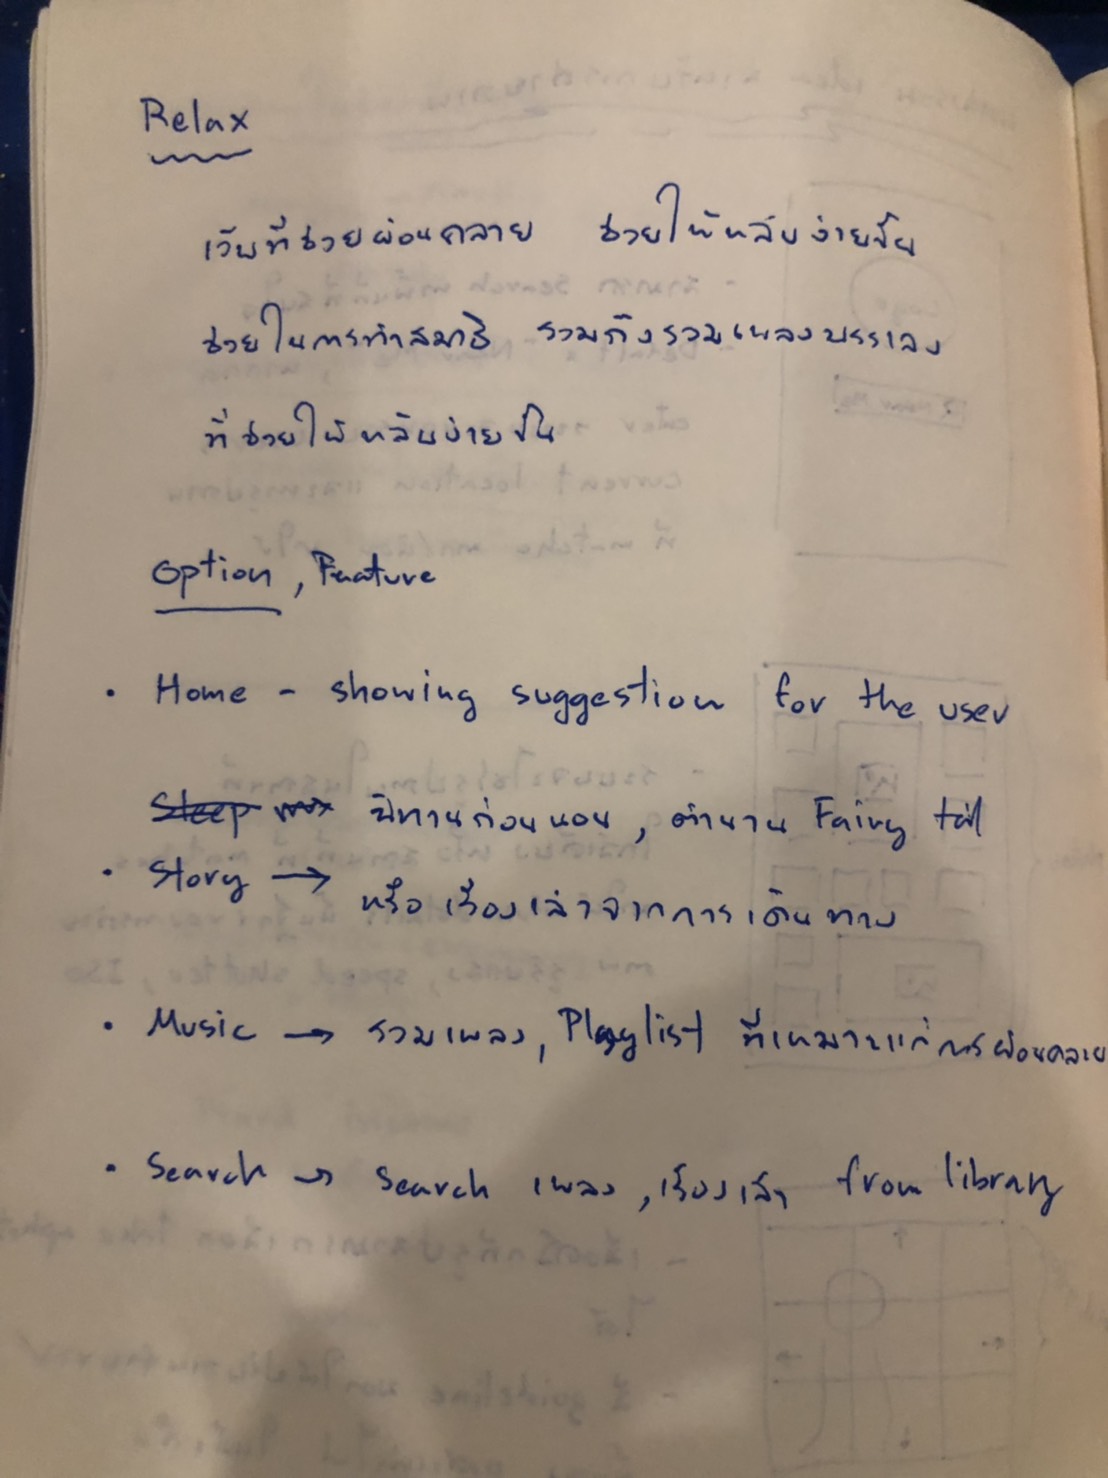 Relax
เว็บที่ช่วยผ่อนคลาย ช่วยให้หลับง่ายขึ้น
ช่วยในการทำสมาธิ รวมถึงรวมเพลงบรรเลง
ที่ช่วยให้หลับง่ายขึ้น
Option , Feature
• Home - showing suggestion for the user
Sleep นิทานก่อนนอน , ตำนาน Fairy tail
• Story → หรือ เรื่องเล่าจากการเดินทาง
• Music → รวมเพลง, Playlist ที่เหมาะแก่การผ่อนคลาย
• Search → Search เพลง , เรื่องเล่า from library